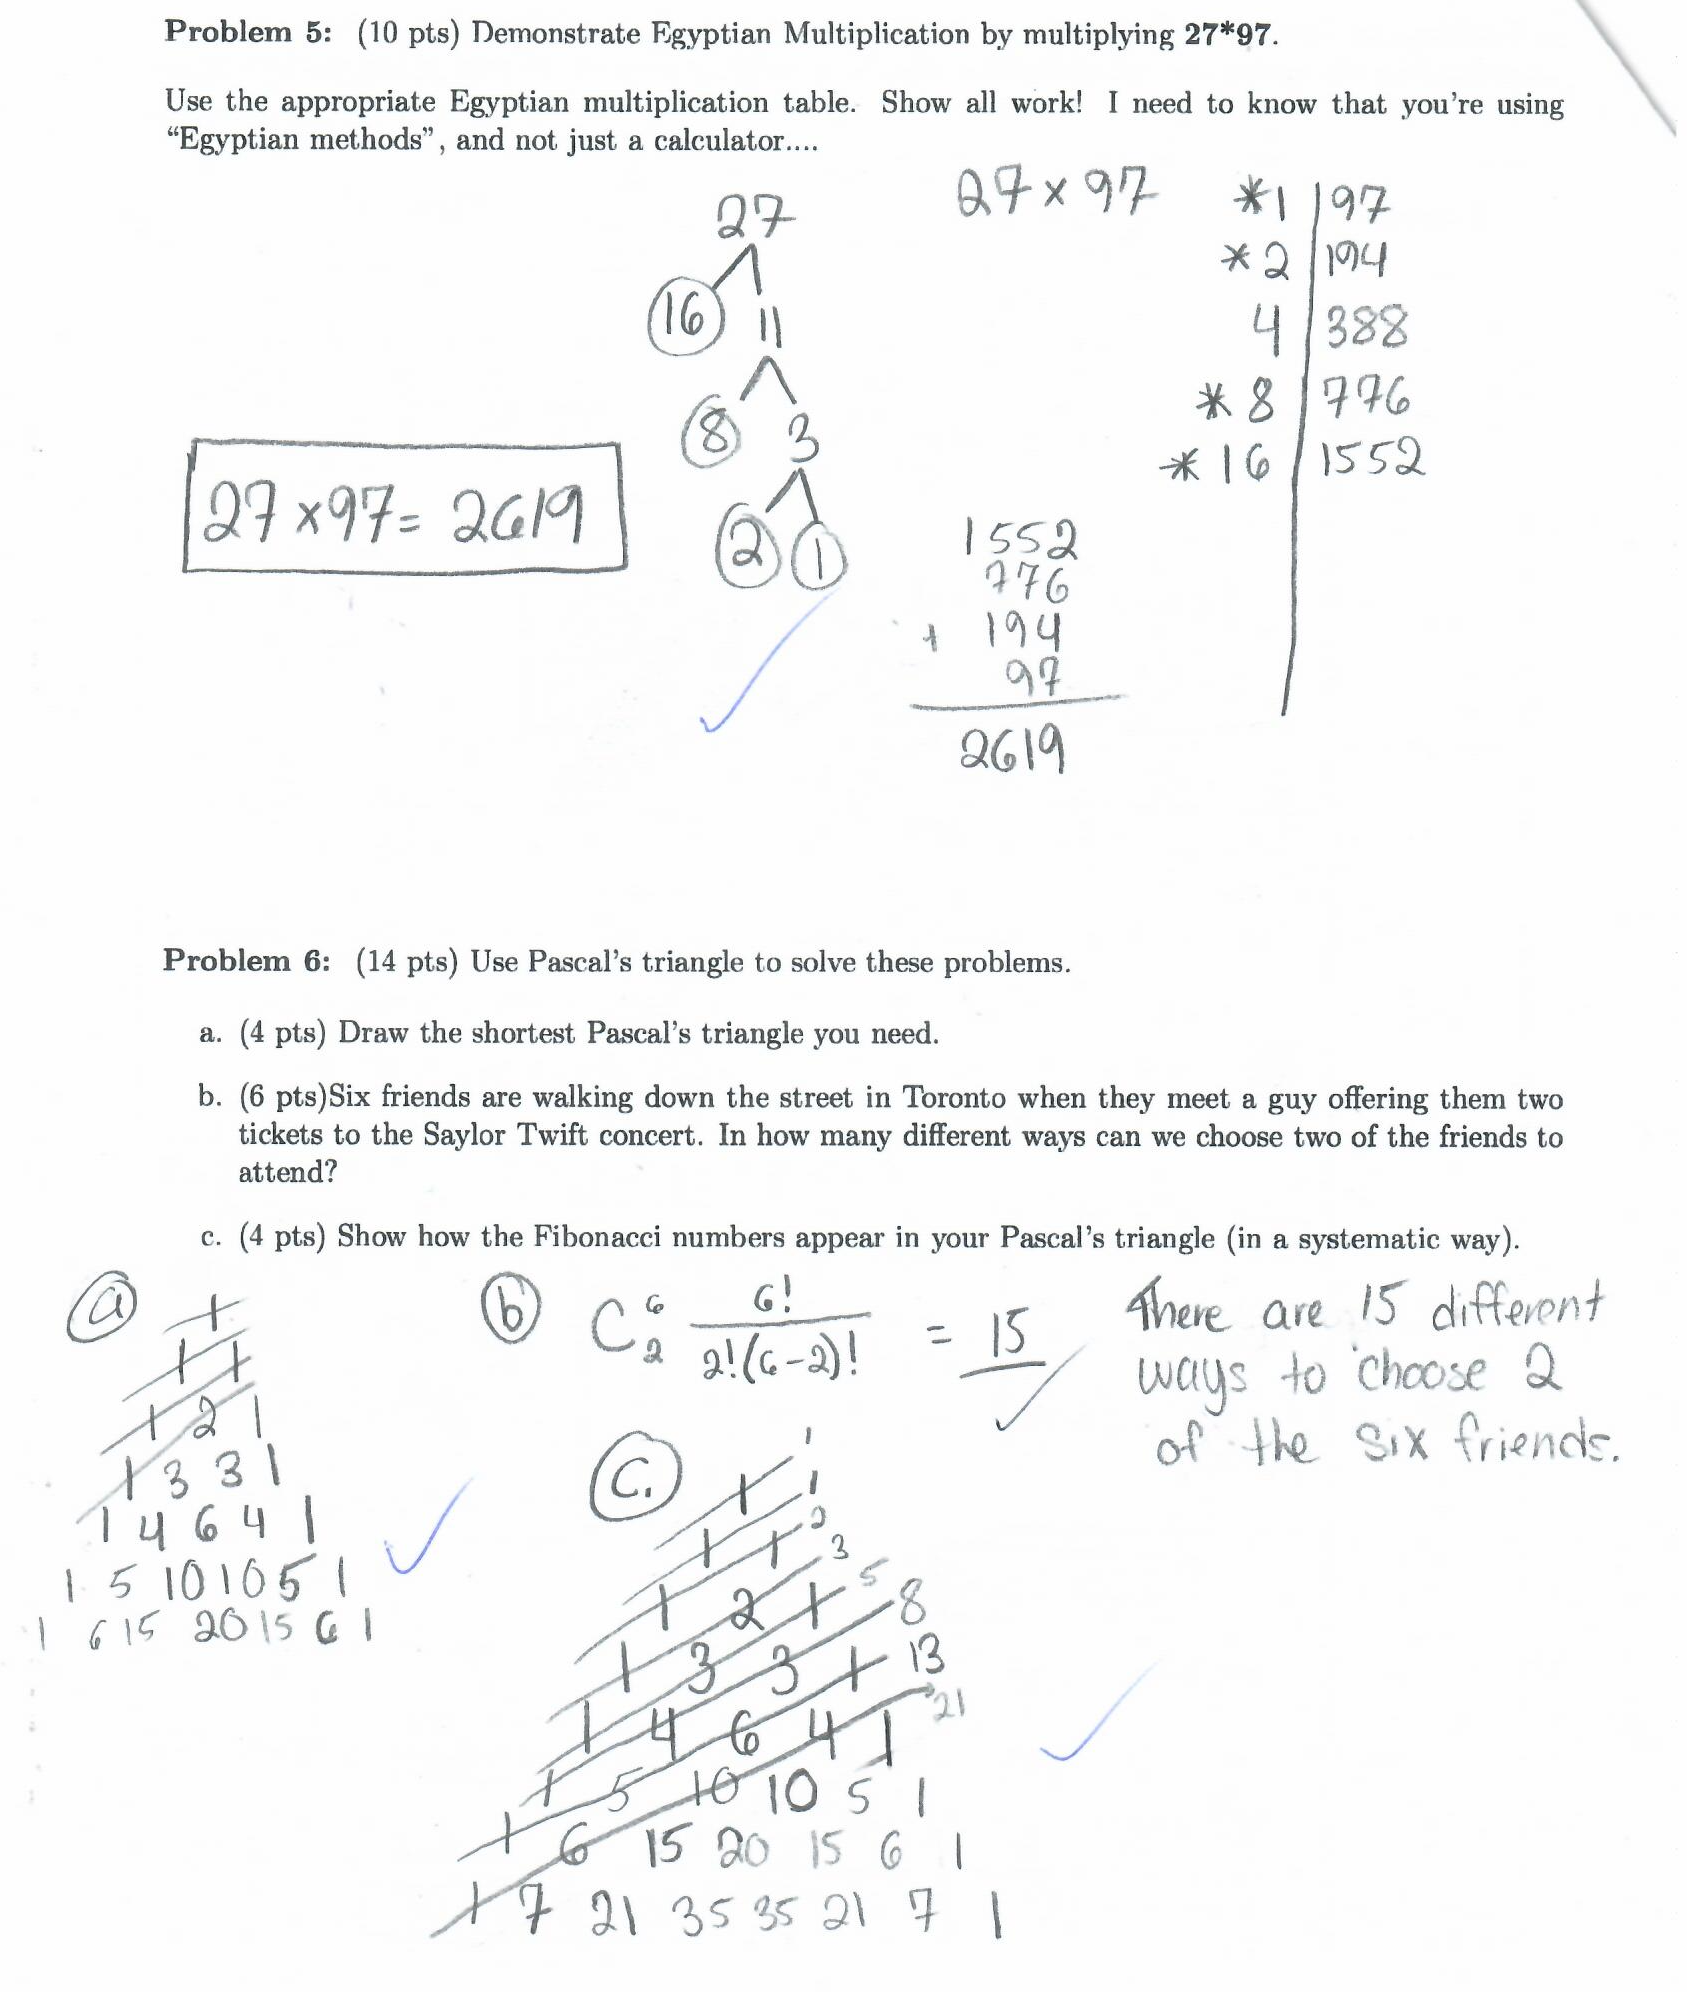 Problem 5: (10 pts) Demonstrate Egyptian Multiplication by multiplying 27*97.
Use the appropriate Egyptian multiplication table. Show all work! I need to know that you're using
"Egyptian methods", and not just a calculator....
27 × 97
27
16 11
8 3
2 1
*1 | 97
*2 | 194
4 | 388
*8 | 776
*16 | 1552
27 × 97 = 2619
1552
776
+ 194
97
2619
Problem 6: (14 pts) Use Pascal's triangle to solve these problems.
a. (4 pts) Draw the shortest Pascal's triangle you need.
b. (6 pts)Six friends are walking down the street in Toronto when they meet a guy offering them two
tickets to the Saylor Twift concert. In how many different ways can we choose two of the friends to
attend?
c. (4 pts) Show how the Fibonacci numbers appear in your Pascal's triangle (in a systematic way).
a
1
1 1
1 2 1
1 3 3 1
1 4 6 4 1
1 5 10 10 5 1
1 6 15 20 15 6 1
b C 6 2 6! / 2!(6-2)! = 15
There are 15 different
ways to choose 2
of the six friends.
c.
1
1 1
1 1 2
3
1 2 1 5 8
1 3 3 1 13
1 4 6 4 1 21
1 5 10 10 5 1
1 6 15 20 15 6 1
1 7 21 35 35 21 7 1